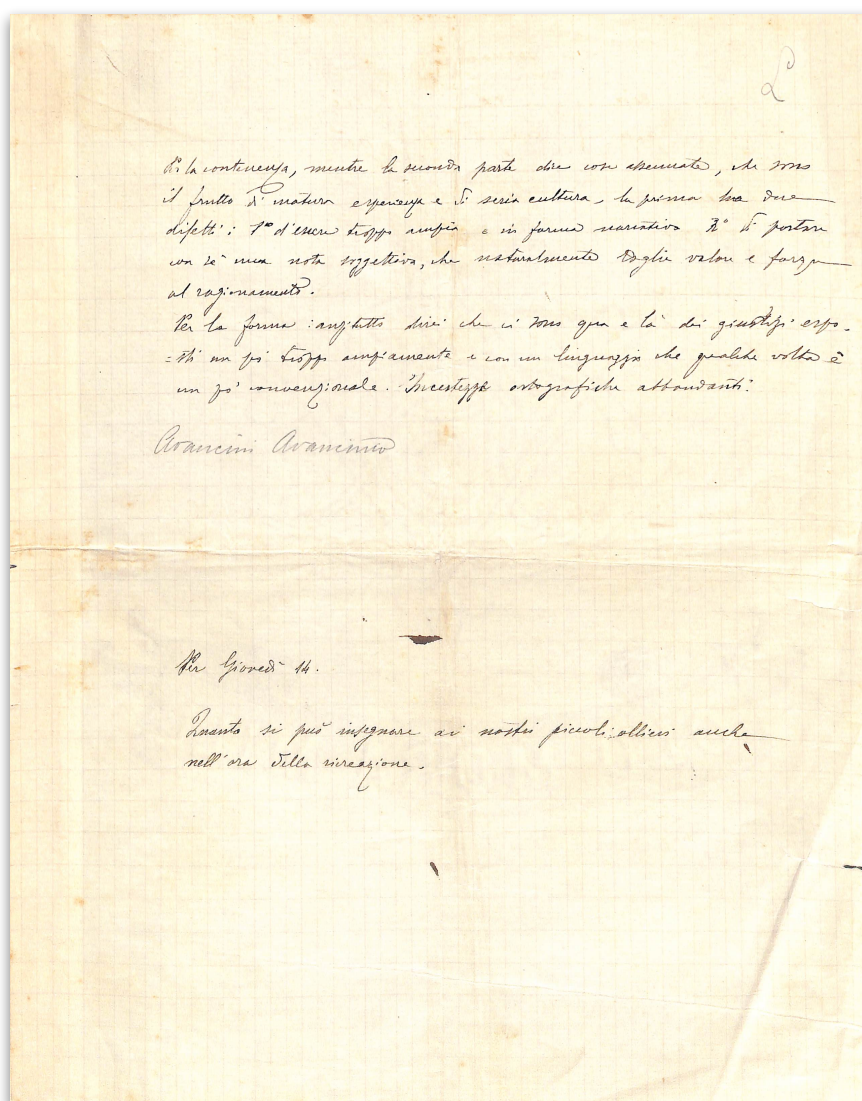 la contenenza, mentre la seconda parte dice cose assennate, che sono
il frutto di matura esperienza e di seria cultura, la prima ha due
difetti: 1° d'essere troppo ampia e in forma narrativa 2° di portare
con sè una nota soggettiva, che naturalmente toglie valore e forza
al ragionamento.
Per la forma: anzitutto direi che ci sono qua e là dei giudizi espo-
=sti un po' troppo ampiamente e con un linguaggio che qualche volta è
un po' convenzionale. Incertezze ortografiche abbondanti.
Avancini Avancinio
Per Giovedì 14.
Quanto si può insegnare ai nostri piccoli allievi anche
nell'ora della ricreazione.